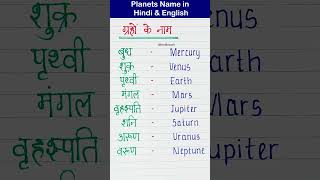 Planets Name in
Hindi & English
ग्रहों के नाम
बुध - Mercury
शुक्र - Venus
पृथ्वी - Earth
मंगल - Mars
वृहस्पति - Jupiter
शनि - Saturn
अरूण - Uranus
वरूण - Neptune
शुक्र
पृथ्वी
मंगल
वृहस्पति